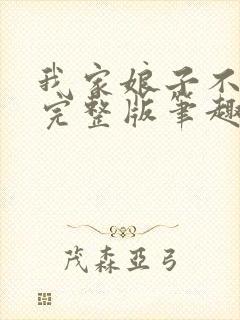 我家娘子不
完整版笔趣
茂森亞弓